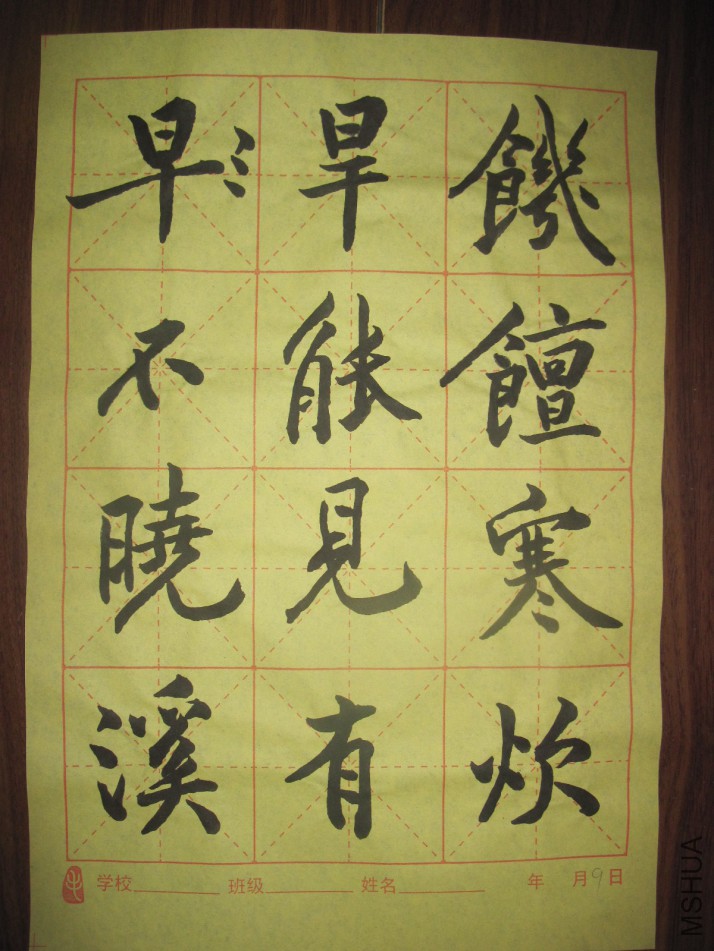 饑饘寒炊
旱能見有
早不曉溪
学校 班级 姓名 年 月9日
MSHUA